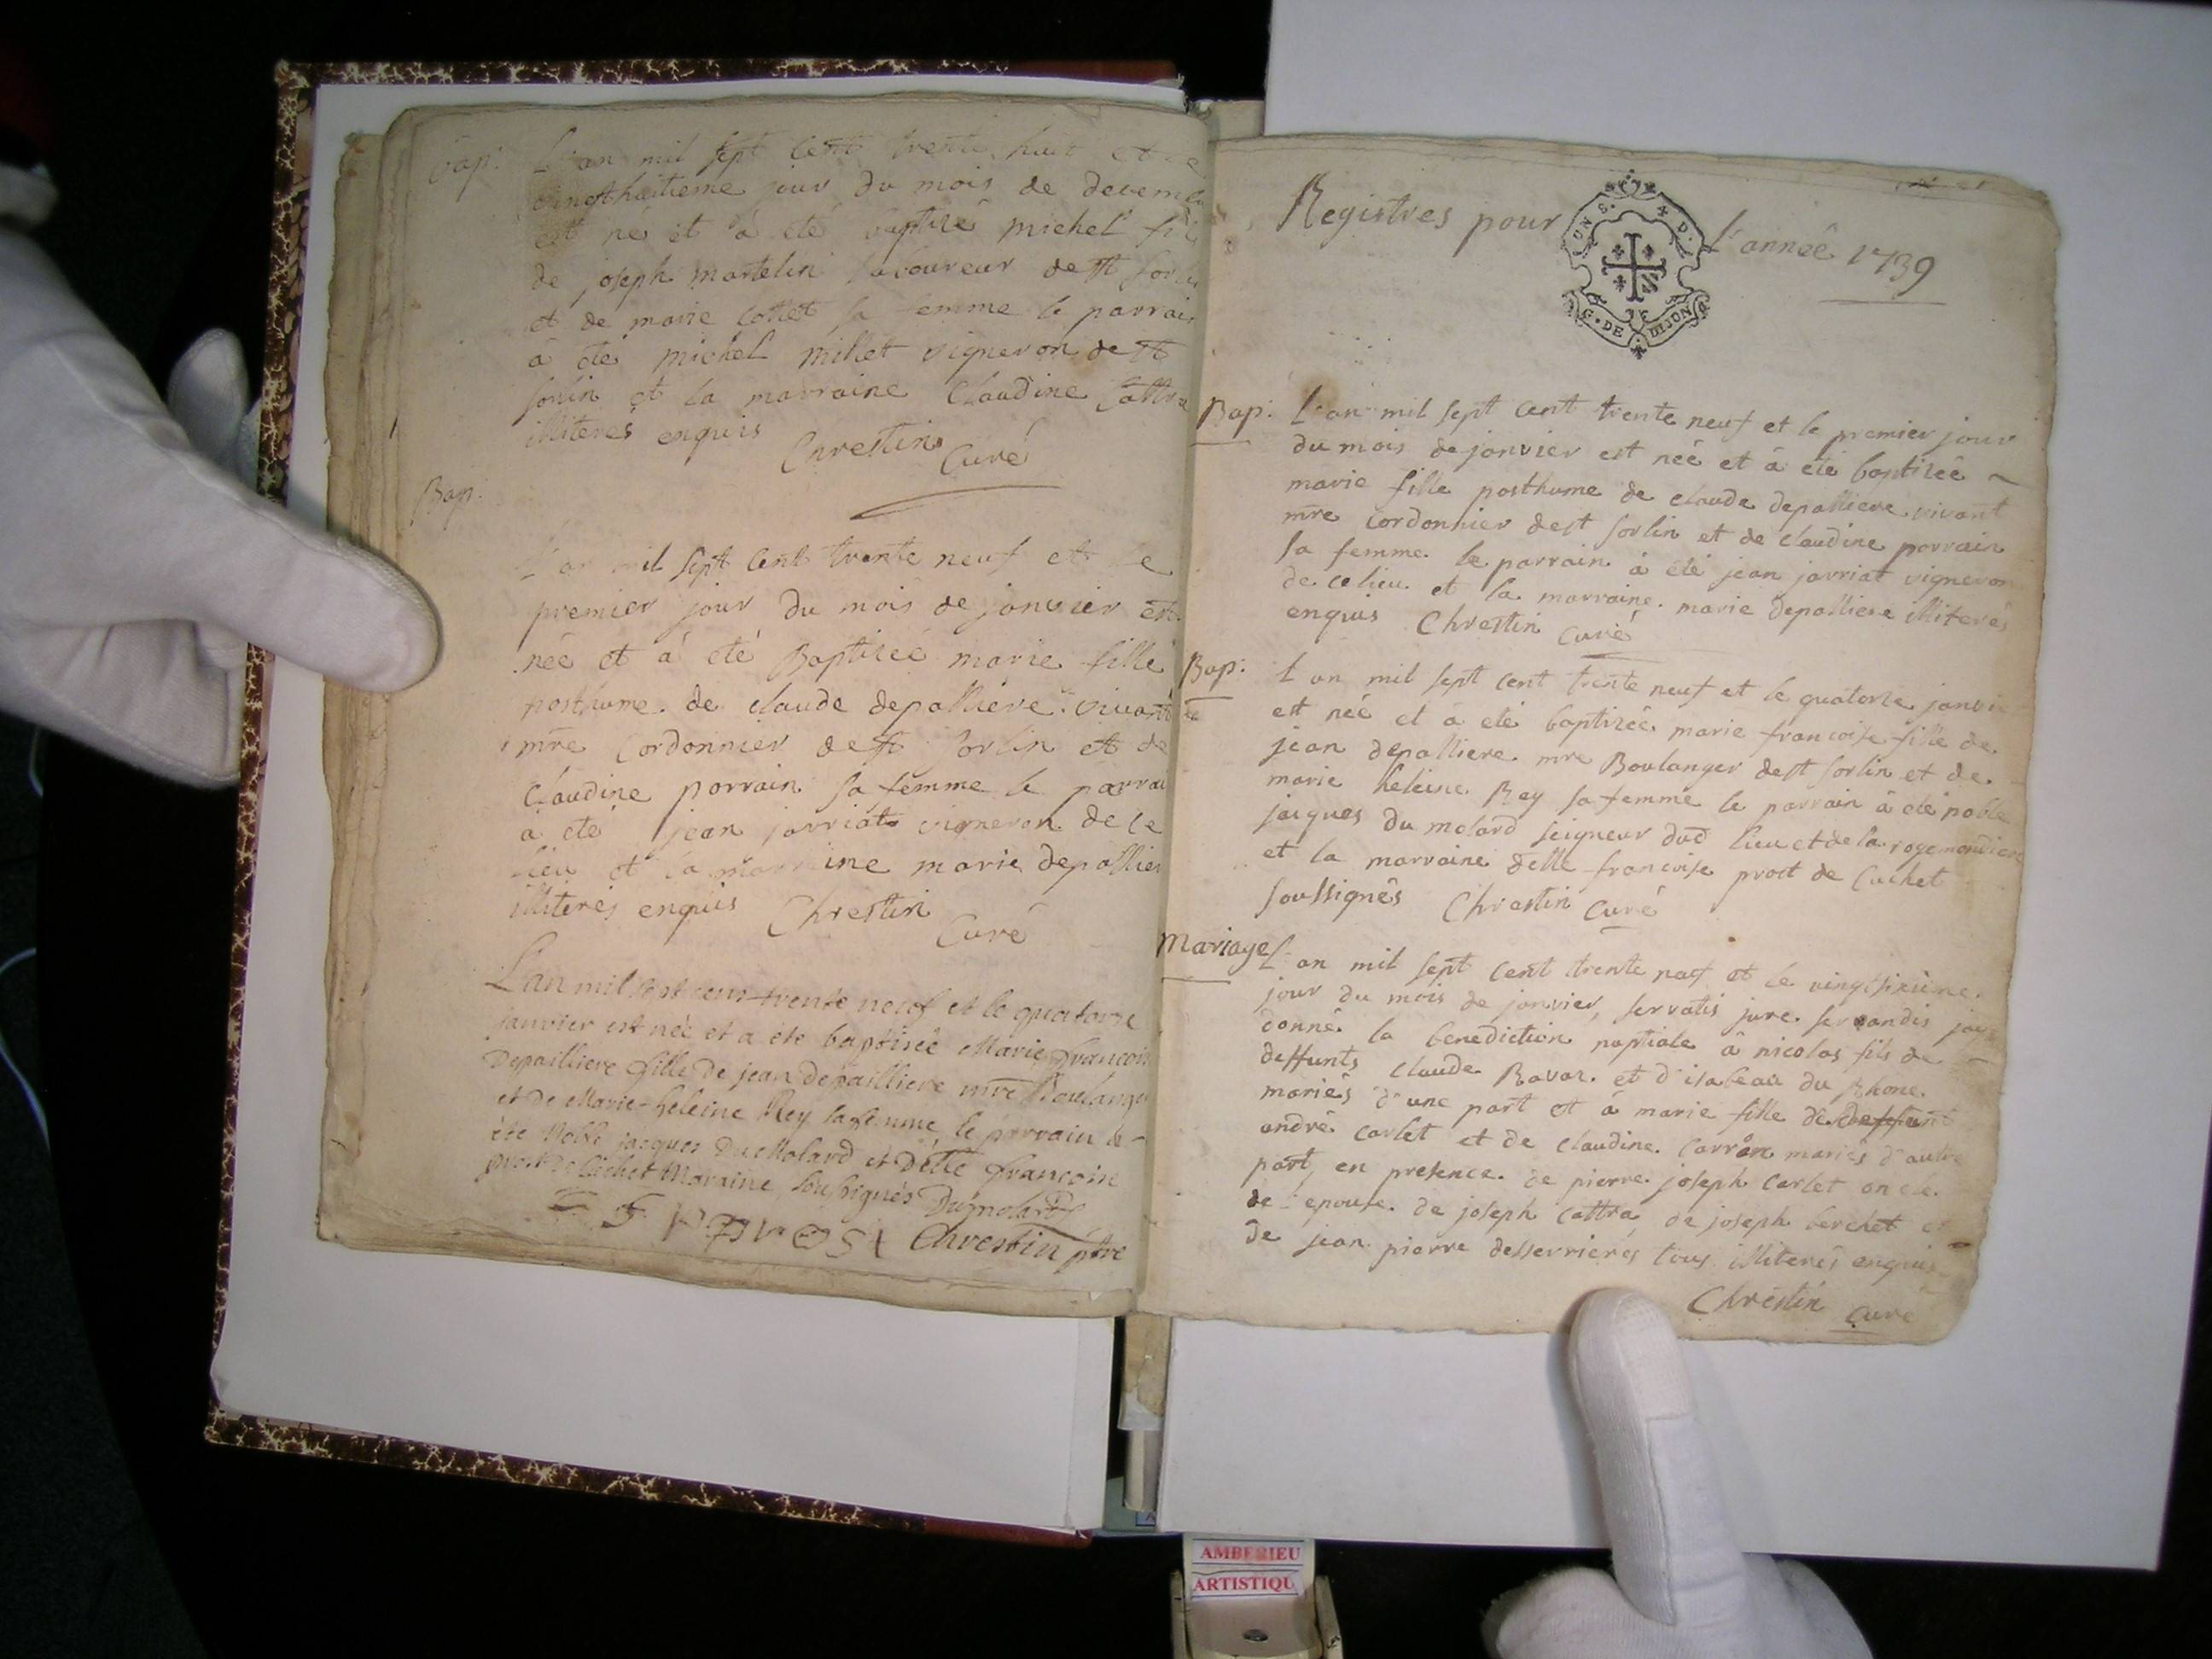 Bap: L'an mil sept cent trente huit et le
vingt huitieme jour du mois de decemb
est né et à été baptizé michel fils
de joseph martelin laboureur de st sorlin
et de marie cottet sa femme le parrain
à été michel millet vigneron de st
sorlin et la marraine Claudine Cattra
illiterés enquis Chrestin Curé
Bap:
L'an mil sept cent trente neuf et le
premier jour du mois de janvier est
née et à été Baptizée marie fille
posthume de claude depalliere vivant
mre Cordonnier de st sorlin et de
Claudine porrain sa femme le parrai
à été jean jarriat vigneron de ce
lieu et la marraine marie depallier
illiterés enquis Chrestin
Curé
L'an mil sept cens trente neuf et le quatorze
janvier est née et a été baptisée Marie francoise
Depailliere fille de jean depailliere mre Boulanger
et de Marie-heleine Rey sa femme le parrain a
été Noble jacques DuMolard et Delle francoise
prost de Cuchet Maraine, soussignés Dumolard
prost Chrestin ptre
Registres pour l'année 1739
UNS. X D.
G. DE DIJON
Bap: L'an mil sept cent trente neuf et le premier jour
du mois de janvier est née et à été baptizée
marie fille posthume de claude depalliere vivant
mre cordonnier de st sorlin et de claudine porrain
sa femme. le parrain à été jean jarriat vigneron
de ce lieu et la marraine marie depalliere illiterés
enquis Chrestin Curé
Bap: L'an mil sept cent trente neuf et le quatorze janvie
est née et à été baptizée marie francoise fille de
jean depalliere mre Boulanger de st sorlin et de
marie heleine Rey sa femme le parrain à été noble
jacques du molard seigneur dud lieu et de la rogemondiere
et la marraine delle francoise prost de Cuchet
soussignés Chrestin Curé
Mariage L'an mil sept cent trente neuf et le vingt sixieme
jour du mois de janvier, servatis jure servandis jay
donné la benediction nuptiale à nicolas fils de
deffunts Claude Ravaz et d'isabeau du Rhone
mariés d'une part et à marie fille de deffunt
andré carlet et de claudine Carron mariés d'autre
part, en presence de pierre joseph Carlet oncle
de l'epouse de joseph Cattra, de joseph berchet et
de jean pierre desserrieres tous illiterés enquis
Chrestin Curé
AMBERIEU
ARTISTIQU